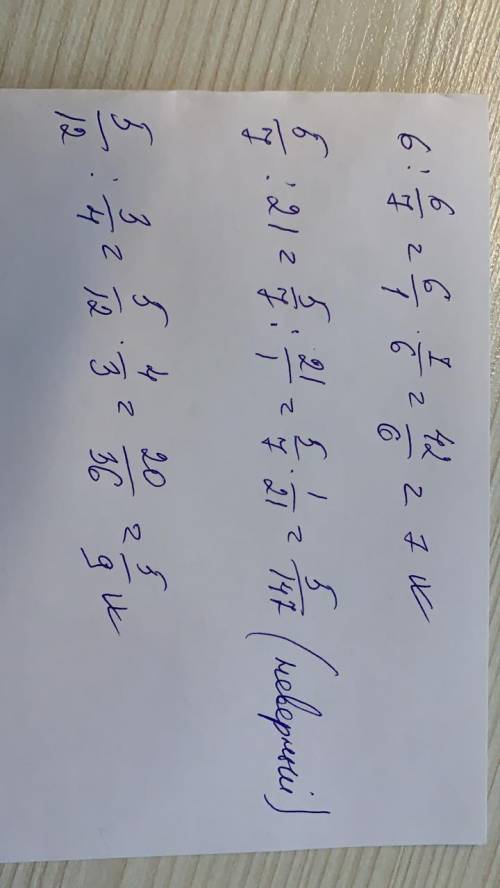 6 : 6/7 = 6/1 · 7/6 = 42/6 = 7
5/7 : 21 = 5/7 : 21/1 = 5/7 · 1/21 = 5/147 (неверный)
5/12 : 3/4 = 5/12 · 4/3 = 20/36 = 5/9